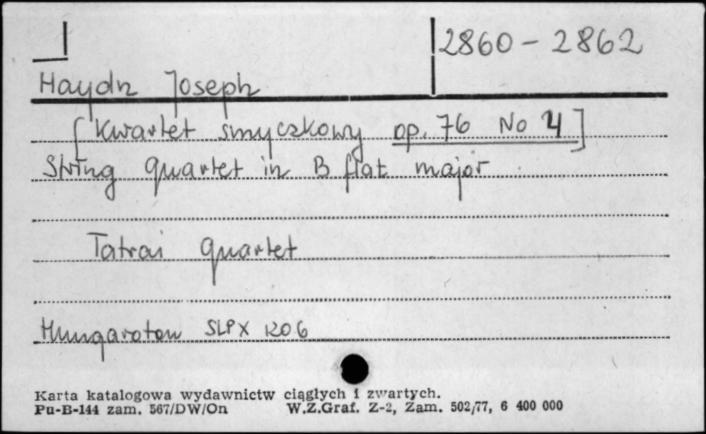 2860 - 2862
Haydn Joseph
[Kwartet smyczkowy op. 76 No 4]
String quartet in B flat major
Tatrai Quartet
Hungaroton SLPX 1206
Karta katalogowa wydawnictw ciągłych i zwartych.
Pu-B-144 zam. 567/DW/On W.Z.Graf. Z-2, Zam. 502/77, 6 400 000